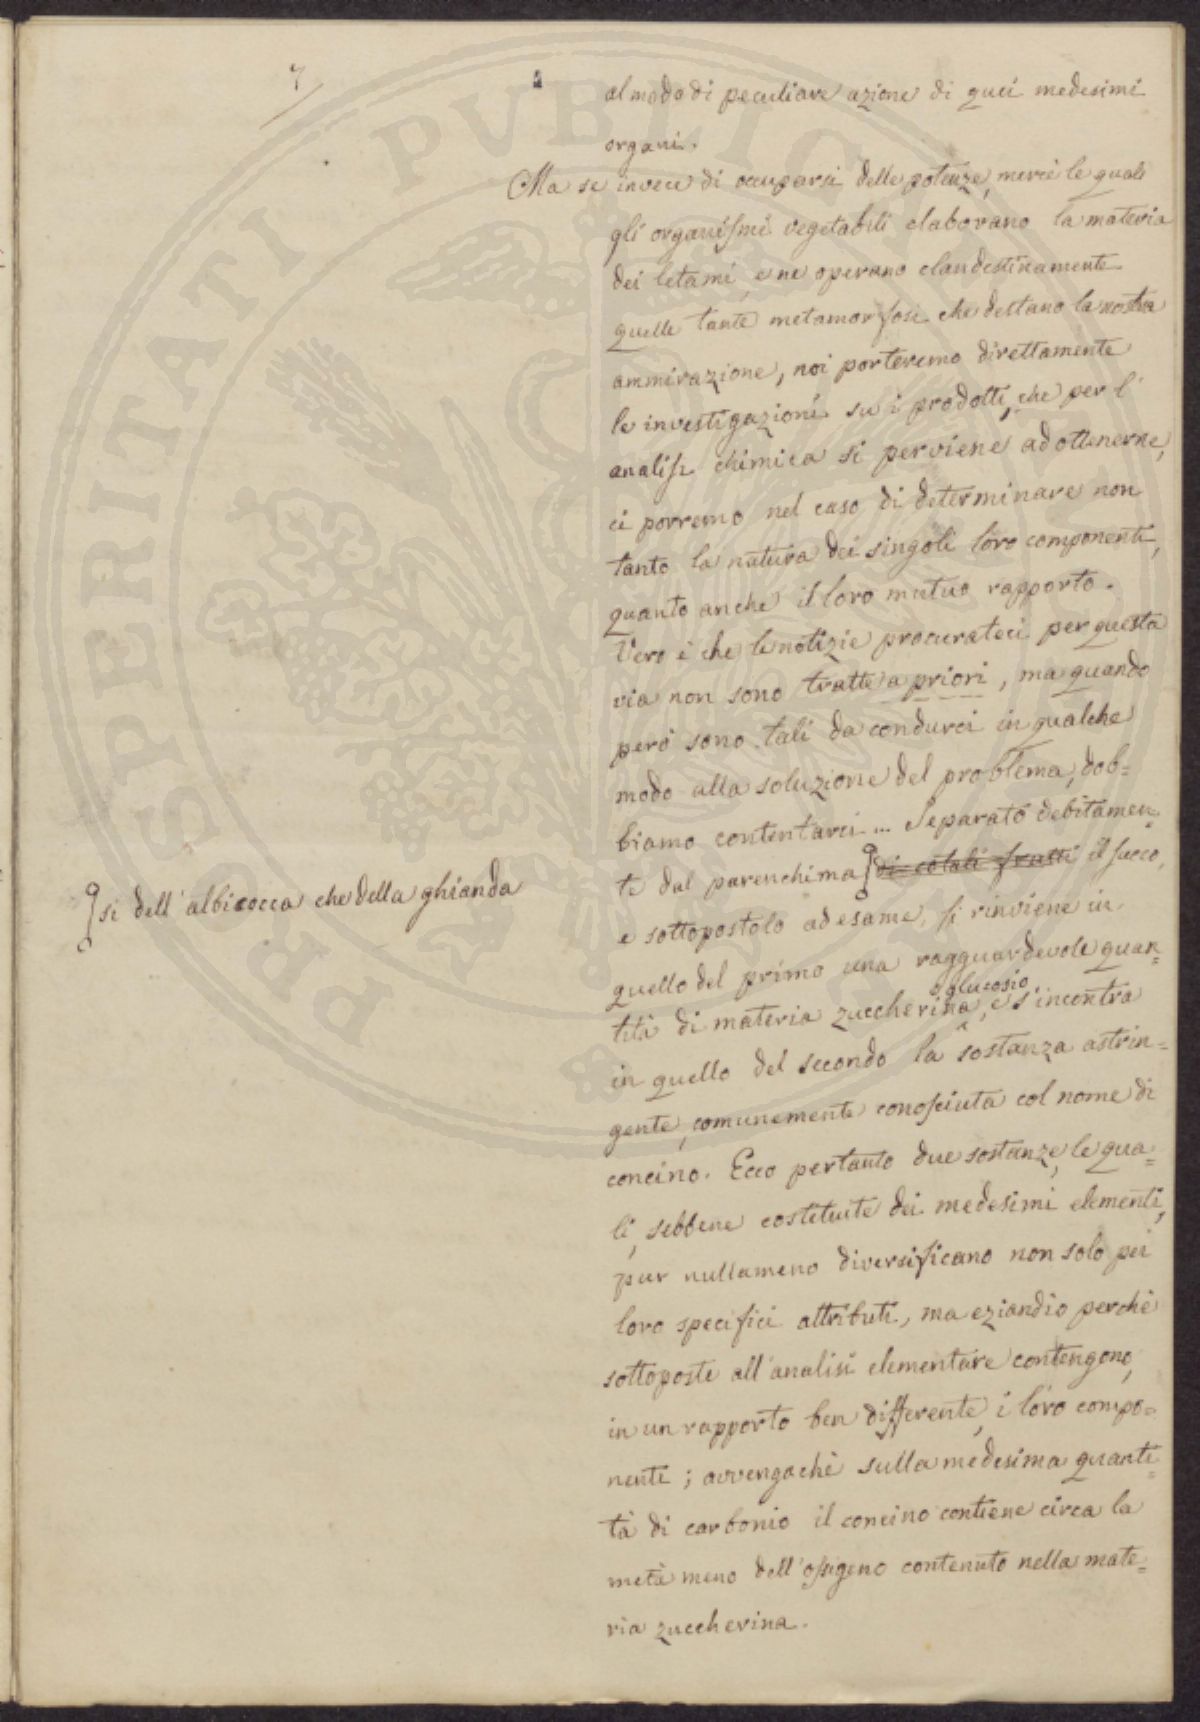 7
al modo di peculiare azione di quei medesimi
organi.
Ma se invece di occuparsi delle potenze, mercè le quali
gli organismi vegetabili elaborano la materia
dei letami, e ne operano clandestinamente
quelle tante metamorfosi che destano la nostra
ammirazione, noi porteremo direttamente
le investigazioni su i prodotti, che per l'
analisi chimica si perviene ad ottenerne,
ci porremo nel caso di determinare non
tanto la natura dei singoli loro componenti,
quanto anche il loro mutuo rapporto.
Vero è che le notizie procurateci per questa
via non sono tratte a priori, ma quando
però sono tali da condurci in qualche
modo alla soluzione del problema, dob=
biamo contentarci... Separato debitamen=
te dal parenchima di cotali frutti il succo,
si dell'albicocca che della ghianda
e sottopostolo ad esame, si rinviene in
quello del primo una ragguardevole quan=
tità di materia zuccherina, e s'incontra
o glucosio
in quello del secondo la sostanza astrin=
gente, comunemente conosciuta col nome di
concino. Ecco pertanto due sostanze, le qua=
li, sebbene costituite dei medesimi elementi,
pur nullameno diversificano non solo pei
loro specifici attributi, ma eziandio perchè
sottoposte all'analisi elementare contengono,
in un rapporto ben differente, i loro compo=
nenti; avvengachè sulla medesima quanti=
tà di carbonio il concino contiene circa la
metà meno dell'ossigeno contenuto nella mate=
ria zuccherina.
PROSPERITATI PVBLICAE